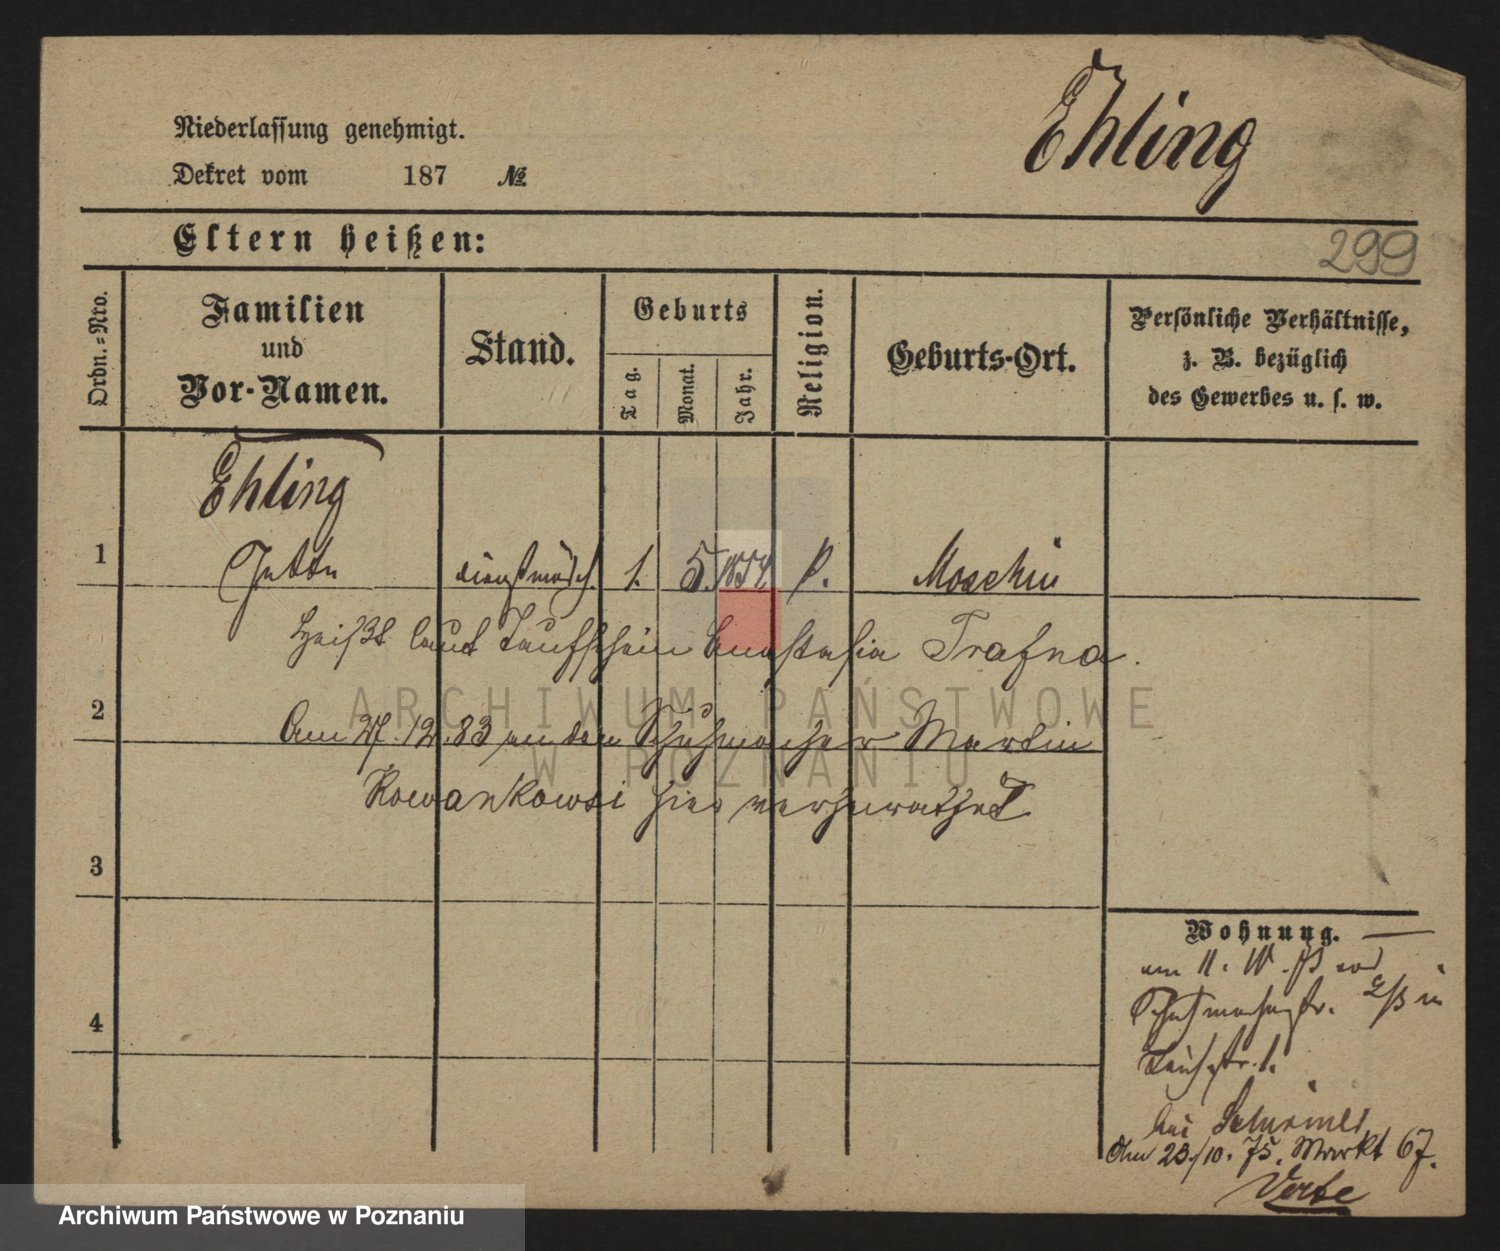 Ehling
Niederlassung genehmigt.
Dekret vom 187 №
Eltern heißen:
299
Ordn.-Nro.
Familien
und
Vor-Namen.
Stand.
Geburts
Tag.
Monat.
Jahr.
Religion.
Geburts-Ort.
Persönliche Verhältnisse,
z. B. bezüglich
des Gewerbes u. s. w.
Ehling
1 Jette dienstmädch. 1. 5. 1854 k. Moschin
Heißt laut Taufschein Anastasia Trafna.
2
Am 27.12.83 an den Schuhmacher Martin
Kowankowski hier verheirathet
3
4
Wohnung.
am 11. IV.
Schuhmacherstr.
Teichstr. 1.
bei
Am 23./10. 75. Markt 67.
ARCHIWUM PAŃSTWOWE
W POZNANIU
Archiwum Państwowe w Poznaniu